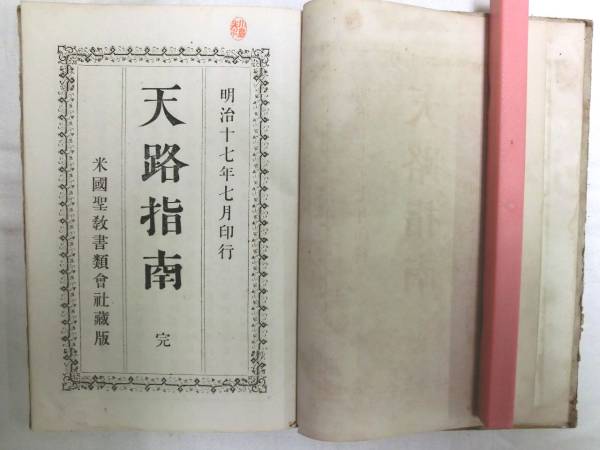 明治十七年七月印行
天路指南 完
米國聖教書類會社藏版